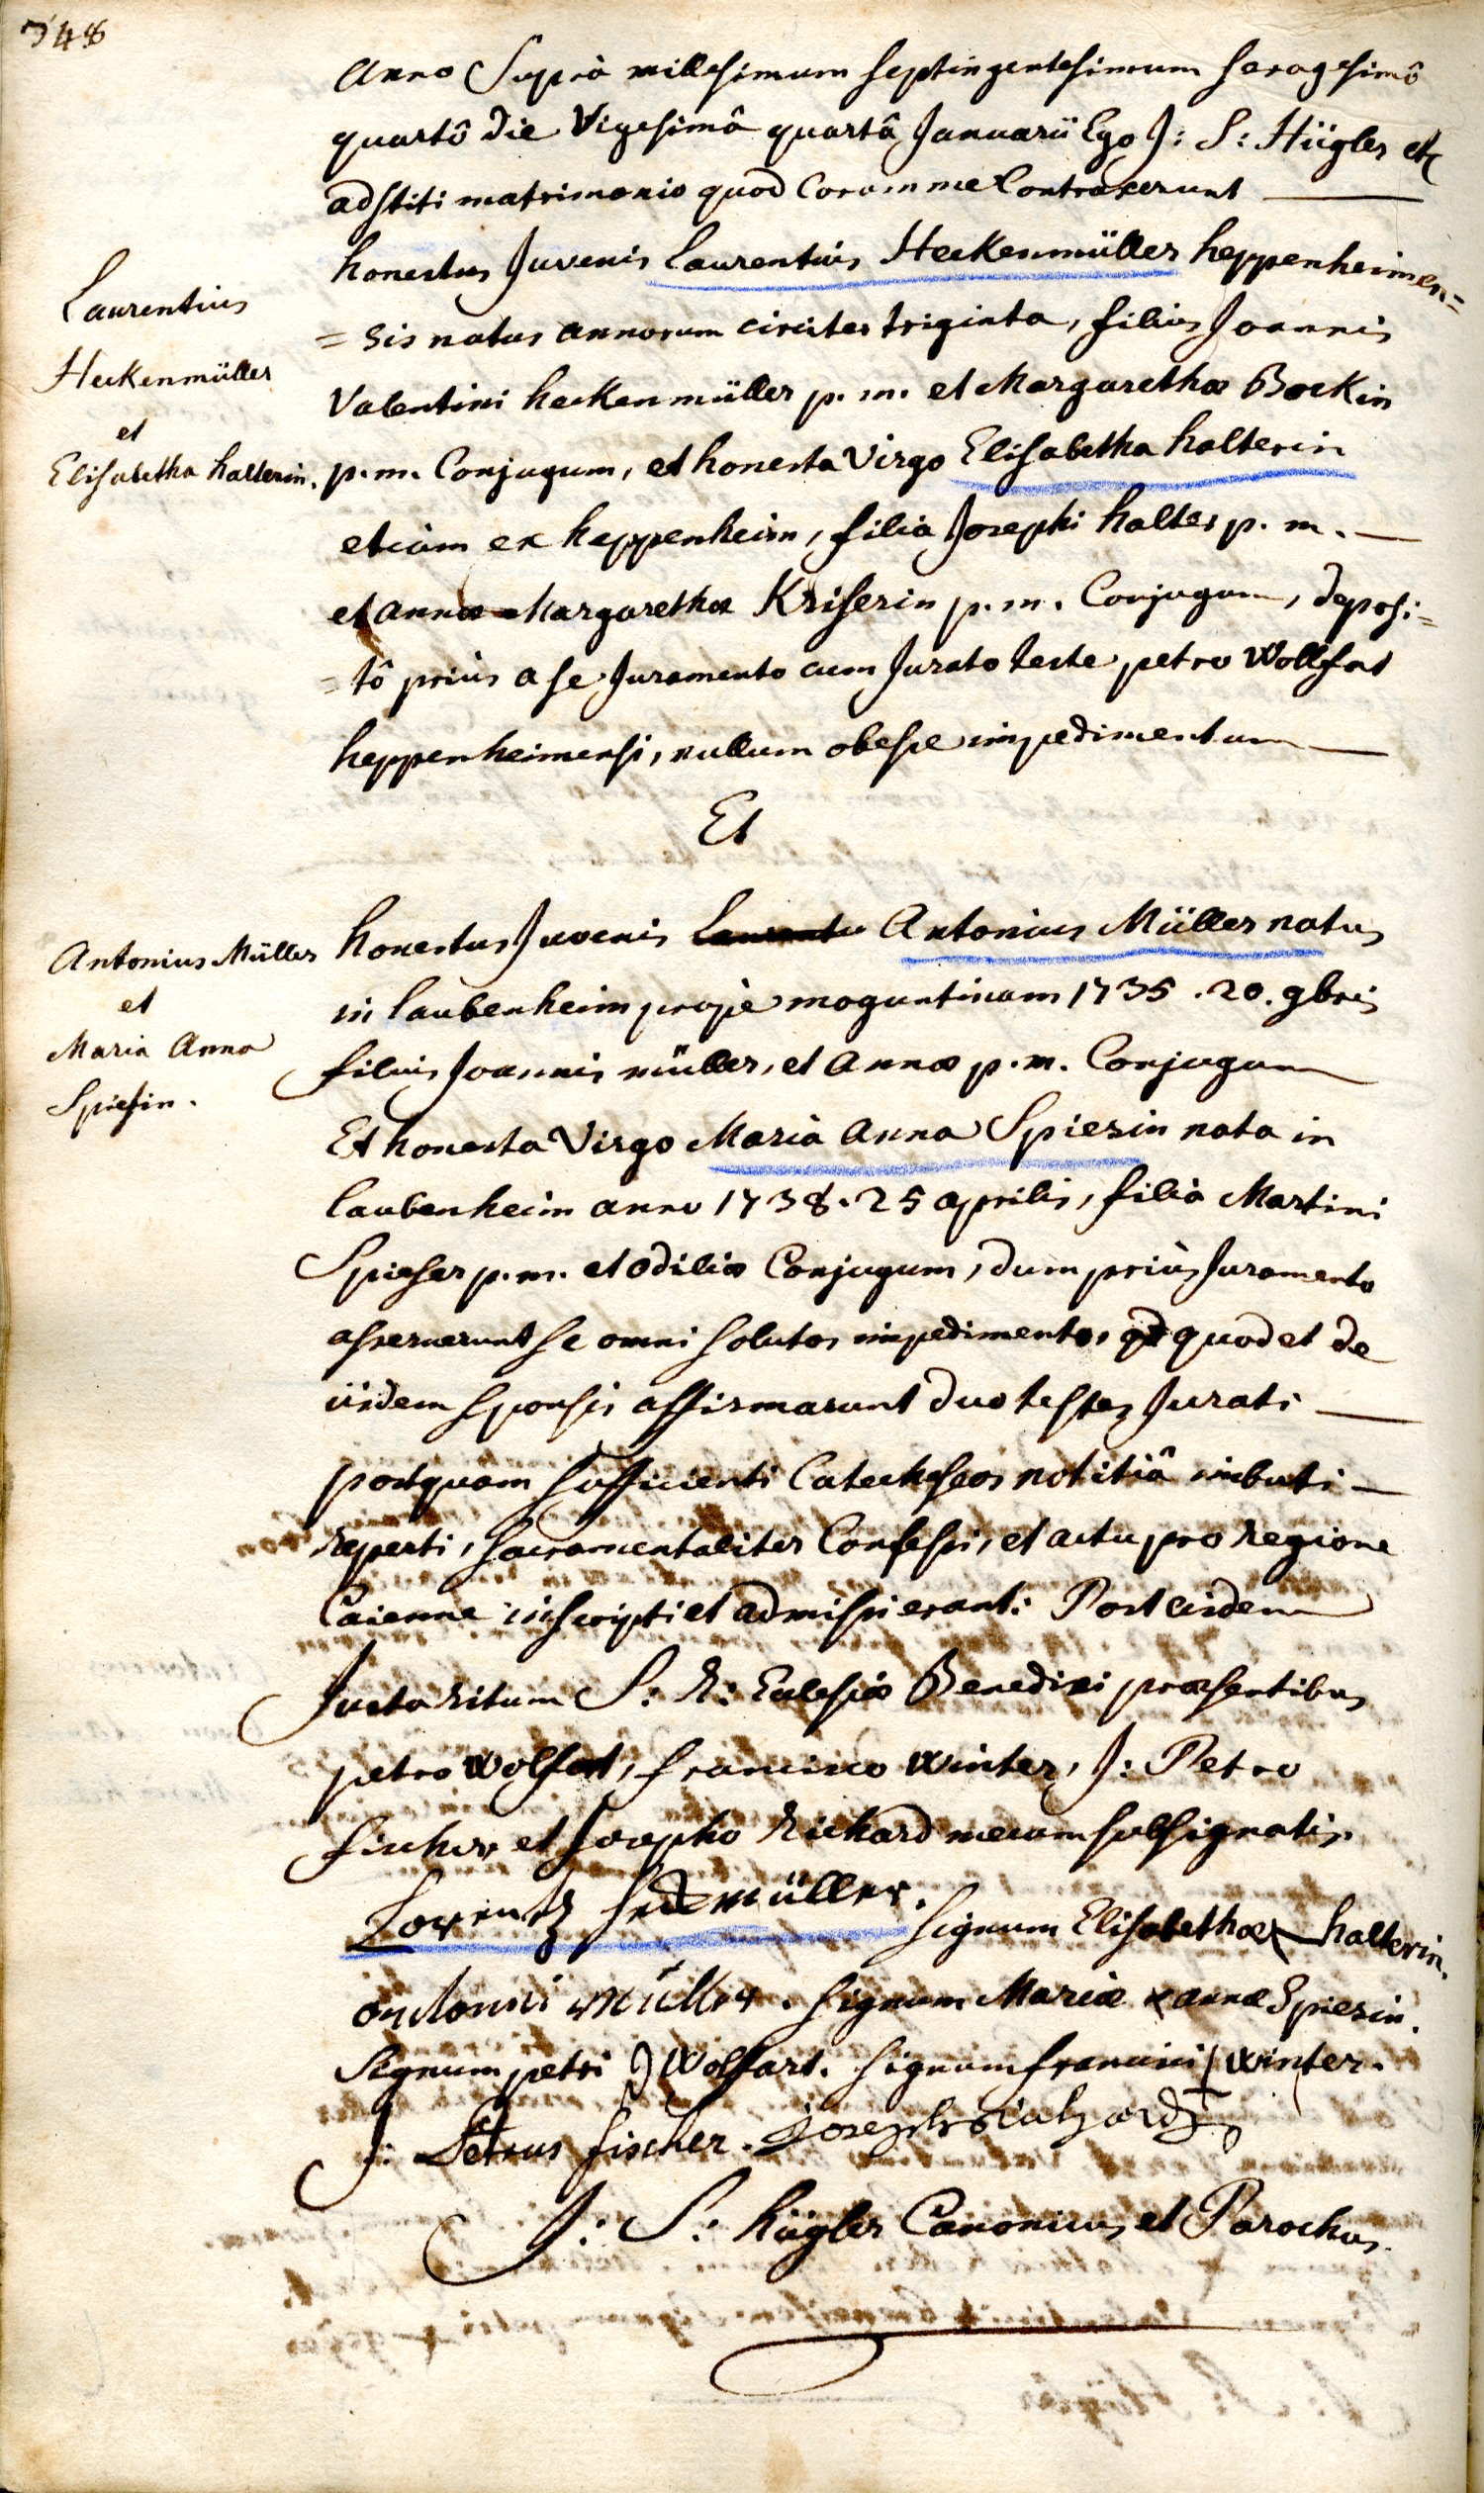 748
Anno Suprà millesimum septingentesimum sexagesimô
quartô die Vigesimâ quartâ Januarii Ego J: S: Hügler etc
adstiti matrimonio quod Coram me Contraxerunt
honestus Juvenis Laurentius Heckenmüller heppenheimen=
=sis natus annorum circiter triginta, filius Joannis
Valentini heckenmüller p. m. et Margarethæ Bockin
p. m. Conjugum, et honesta Virgo Elisabetha halterin
etiam ex heppenheim, filia Josephi halter p. m.
et annæ Margarethæ Kriserin p. m. Conjugum, deposi=
=tô priùs a se Juramento cum Jurato teste petro Wollfart
heppenheimensi, nullum obesse impedimentum
Laurentius
Heckenmüller
et
Elisabetha halterin.
Et
honestus Juvenis Antonius Müller natus
in laubenheim prope moguntinam 1735. 20. 9bris
filius Joannis müller, et Annæ p. m. Conjugum
Et honesta Virgo Maria Anna Spiesin nata in
laubenheim anno 1738. 25 aprilis, filia Martini
Spieser p. m. et Odiliæ Conjugum, dum priùs Juramento
asseruerunt se omni solutos impedimento, quod et de
iisdem sponsis affirmarunt duo testes Jurati
postquam sufficienti Catecheseos notitiâ imbuti
reperti, sacramentaliter Confessi, et actu pro regione
Caienne inscripti et admissi erant: Post eisdem
Juxta ritum S: R: Ecclesiæ Benedixi præsentibus
petro Wolfart, francisco winter, J: Petro
fischer, et Josepho Richard mecum subsignatis.
Antonius Müller
et
Maria Anna
Spiesin.
Lorentz heckemüller.
Signum Elisabethæ halterin.
antonni müller. Signum Mariæ x annæ Spiesin.
Signum petri Wolfart. Signum francisci winter.
J: Petrus fischer. Joseph richard
J: S: hügler Canonicus et Parochus.